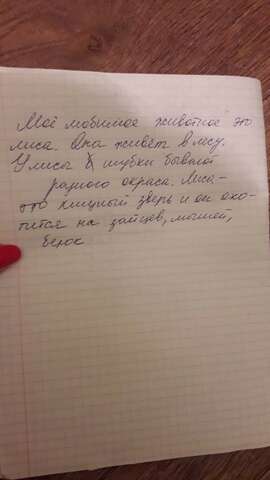 Моё любимое животное это
лиса. Она живёт в лесу.
У лисы шубки бывают
разного окраса. Лиса –
это хищный зверь и он охо-
тится на зайцев, мышей,
белок